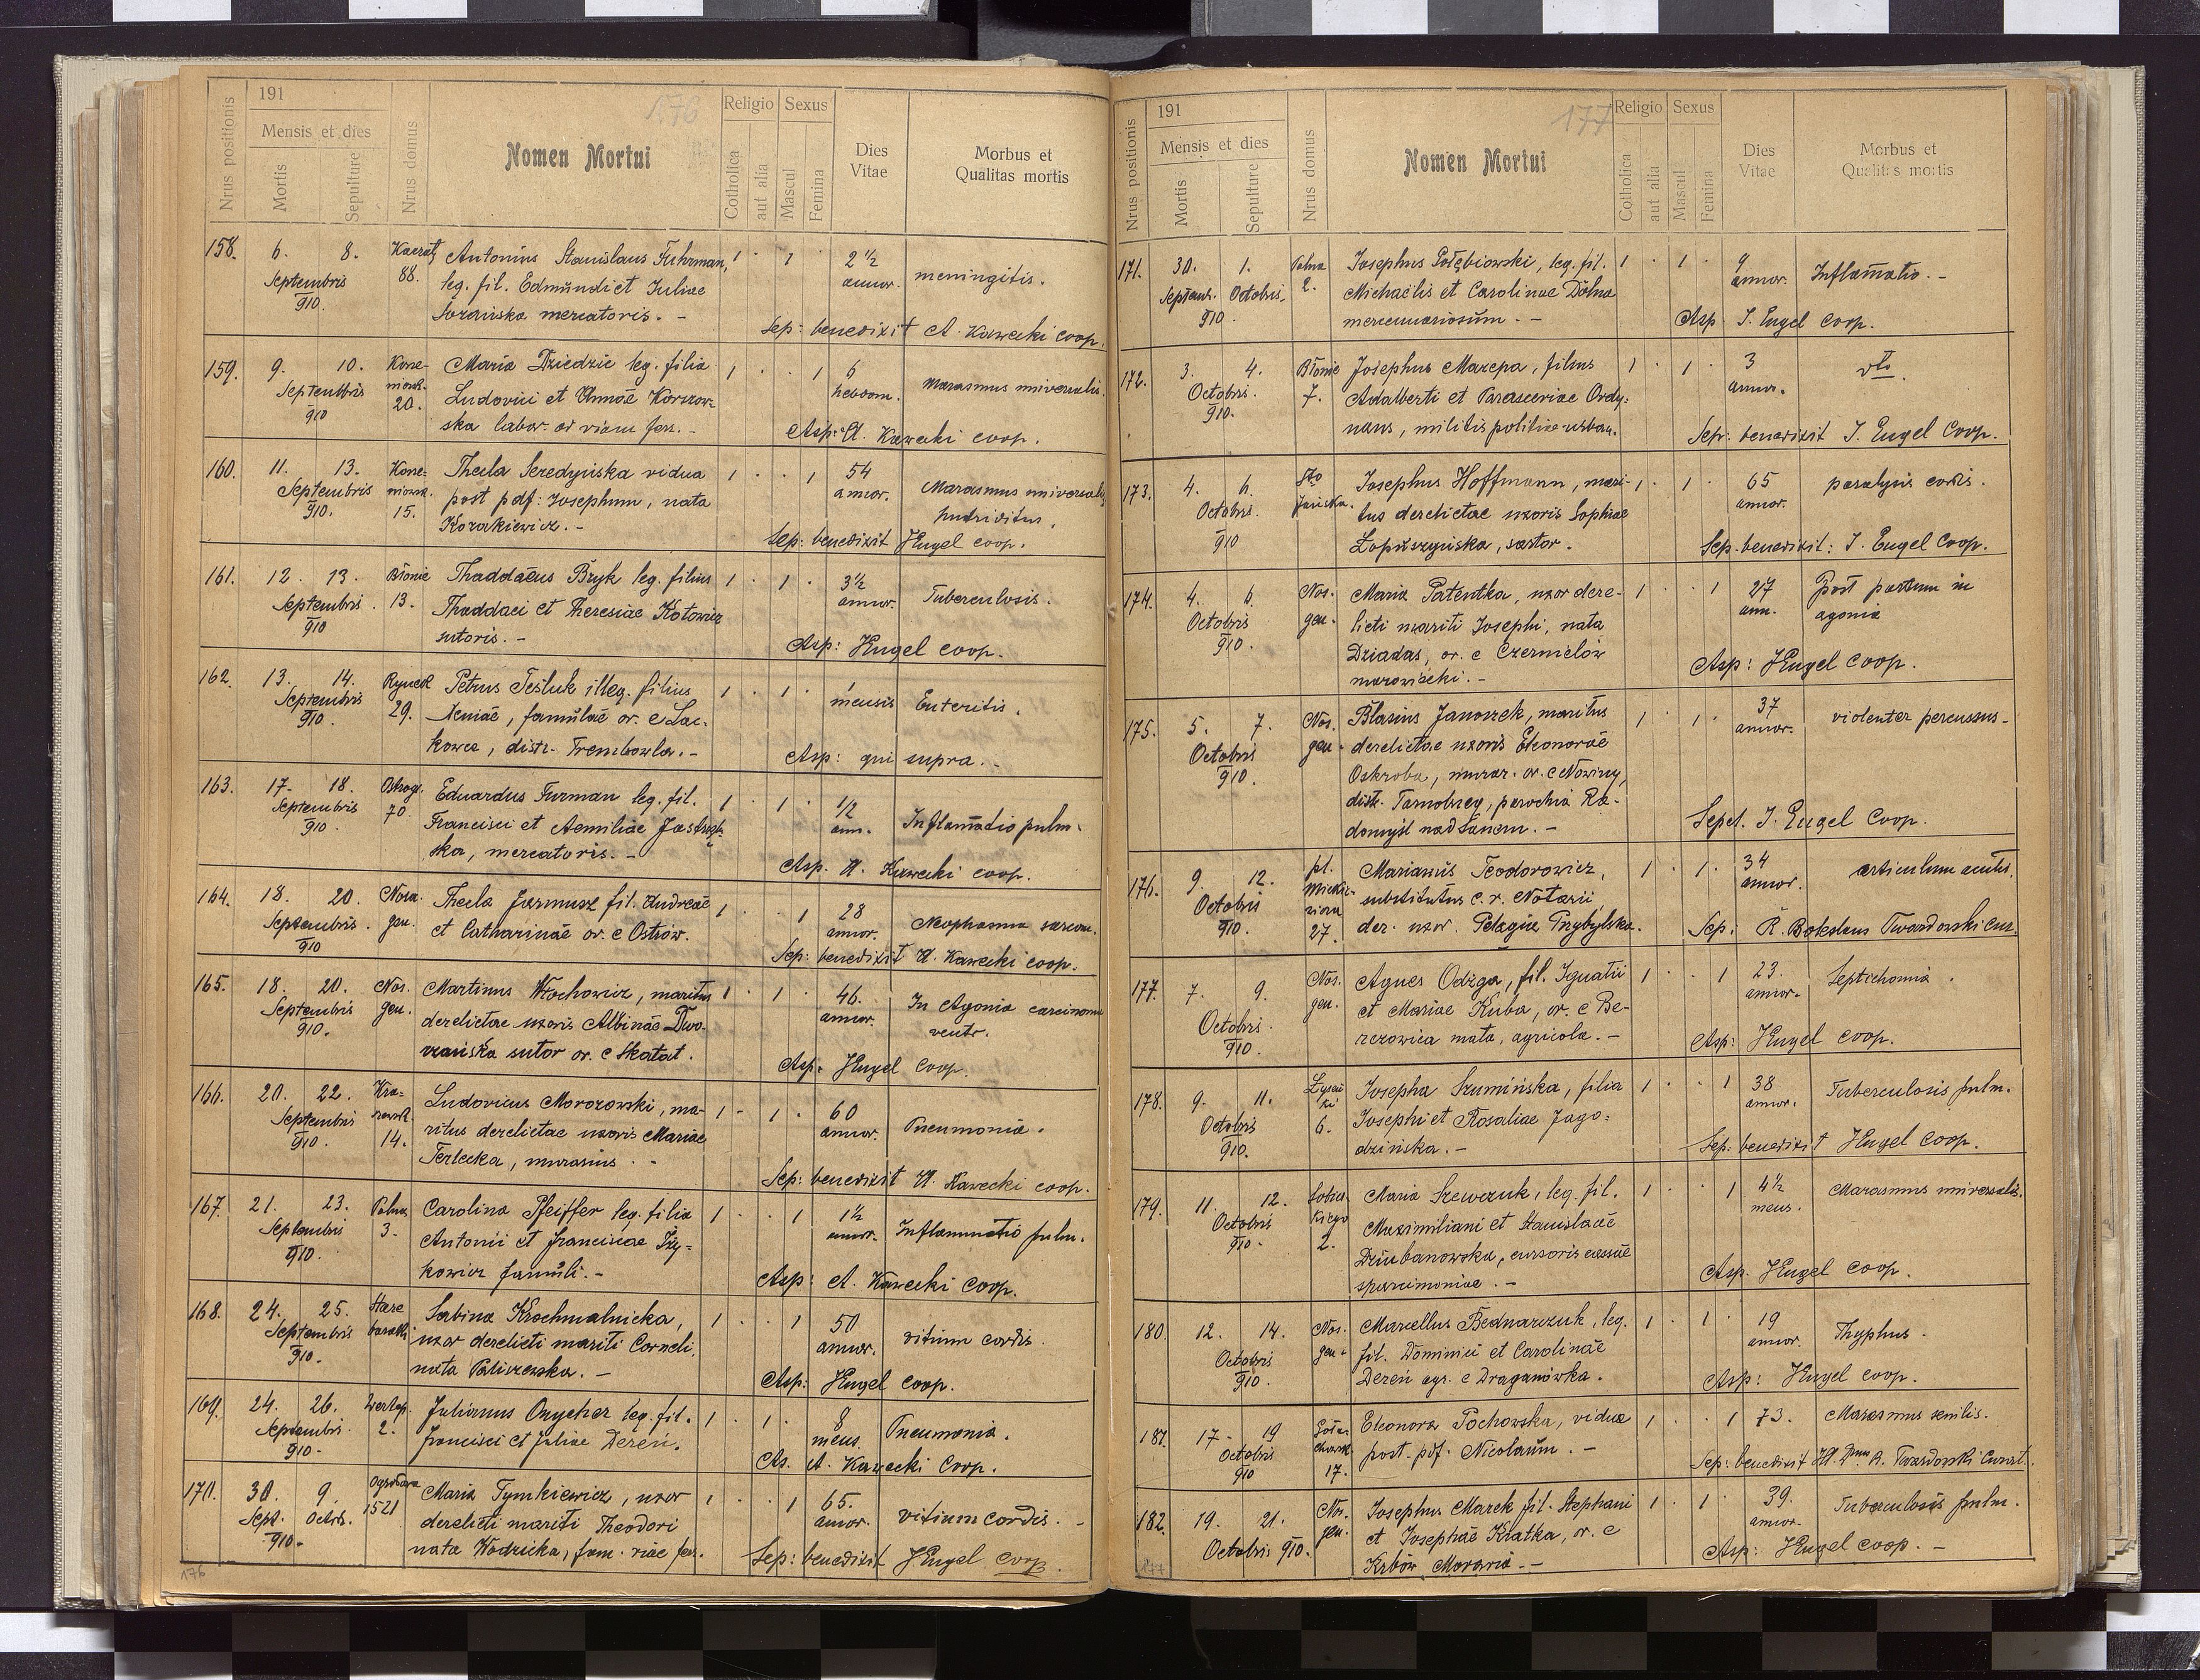 176
191
Nrus positionis
Mensis et dies
Mortis
Sepulture
Nrus domus
Nomen Mortui
Religio
Catholica
aut alia
Sexus
Mascul
Femina
Dies Vitae
Morbus et
Qualitas mortis
158. 6. 8. Antonius Stanislaus Fuhrman, 1 · 1 · 2 1/2
Septembris 88. leg. fil. Edmundi et Juliae annor. meningitis.
910. mercatoris. -
Sep: benedixit A. Kawecki coop.
159. 9. 10. Kone- Maria Dziedzic leg. filia 1 · · 1 6
Septembris 20. Ludovici et Annae Korzow- hebdom. Marasmus universalis.
910 ska labor. ad viam ferr. -
Asp: A. Kawecki coop.
160. 11. 13. Kone- Thecla Seredyńska vidua 1 · · 1 54
Septembris 15. post pdf: Josephum, nata annor. Marasmus universalis
910. Kozakiewicz. -
Sep: benedixit JEngel coop.
161. 12. 13. Błonie Thaddaeus Bryk leg. filius 1 · 1 · 3 1/2
Septembris. 13. Thaddaei et Theresiae Kotowicz annor. Tuberculosis.
910 sutoris. -
Asp: JEngel coop.
162. 13. 14. Rynek Petrus Tesluk illeg. filius 1 · 1 · 1
Septembris 29. Xeniae, famulae or. e Łac- mensis Enteritis.
910. kowce, distr. Trembowla. -
Asp: qui supra. -
163. 17. 18. Ostrogs. Eduardus Furman leg. fil. 1 · 1 · 1/2
Septembris 70. Francisci et Aemiliae Jastrzęb- ann. Inflamatio pulm.
910. ska, mercatoris. -
Asp. A. Kawecki coop.
164. 18. 20. Noso. Thecla Jarmusz fil. Andreae 1 · · 1 28
Septembris. gen. et Catharinae or. e Ostrów. annor. Neophasma sarcom.
910
Sep: benedixit A. Kawecki coop.
165. 18. 20. Nos. Martinus Włochowicz, maritus 1 · 1 · 46.
Septembris gen. derelictae uxoris Albinae Dwo- annor. In Agonia carcinoma
910. rzańska sutor or. e Skałat. ventr.
Asp. JEngel coop.
166. 20. 22. Ludovicus Morozowski, ma- 1 - 1 · 60
Septembris 14. ritus derelictae uxoris Mariae annor. Pneumonia.
910. Terlecka, murarius. -
Sep: benedixit A. Kawecki coop.
167. 21. 23. Polna Carolina Pfeiffer leg. filia 1 · · 1 1 1/2
Septembris 3. Antonii et Franciscae Ży- annor. Inflammatio pulm.
910. kowicz famuli. -
Asp: A. Kawecki coop.
168. 24. 25. Stare Sabina Krochmalnicka, 1 · · 1 50
Septembris baraki uxor derelicti mariti Corneli, annor. vitium cordis.
910. nata Paliszewska. -
Asp: JEngel coop.
169. 24. 26. Wertep. Julianus Onycher leg. fil. 1 · 1 · 8
Septembris 2. Francisci et Juliae Dereń. mens. Pneumonia.
910.
As. A. Kawecki Coop.
170. 30. 9. Maria Tymkiewicz, uxor 1 · · 1 65.
Sept. Octobr. 1521 derelicti mariti Theodori annor. vitium cordis. -
910. nata Wodzicka, fam. viae fer.
Sep: benedixit JEngel coop.
176
177
191
Nrus positionis
Mensis et dies
Mortis
Sepulture
Nrus domus
Nomen Mortui
Religio
Catholica
aut alia
Sexus
Mascul
Femina
Dies Vitae
Morbus et
Qualitas mortis
171. 30. 1. Polna Josephus Gołębiowski, leg. fil. 1 · 1 · 9
Septembr. Octobris. 2. Michaelis et Carolinae Dolna annor. Inflamatio. -
910. mercenariorum. -
Asp J. Engel coop.
172. 3. 4. Błonie Josephus Mazepa, filius 1 · 1 · 3 dto.
Octobris. 7. Adalberti et Parasceviae Ordy- annor.
910. nans, militis politiae urban.
Sep: benedixit J. Engel Coop.
173. 4. 6. Sto Josephus Hoffmann, mari- 1 · 1 · 65 paralysis cordis.
Octobris. Jańska. tus derelictae uxoris Sophiae annor.
910 Łopuszyńska, sartor.
Sep. benedixit: J. Engel Coop.
174. 4. 6. Nos. Maria Patentka, uxor dere- 1 · · 1 27 Post partum in
Octobris gen. licti mariti Josephi, nata ann. agonia
910. Dziadas, or. e Czernielów
mazowiecki. -
Asp: JEngel coop.
175. 5. 7. Nos. Blasius Janoszek, maritus 1 · 1 · 37 violenter percussus -
Octobris gen. derelictae uxoris Eleonorae annor.
910. Oskroba, murar. or. e Nowiny,
distr. Tarnobrzeg, parochia Ra-
domyśl nad Sanem. -
Sepel. J. Engel Coop.
176. 9. 12. pl. Marianus Teodorowicz, 1 · 1 · 34
Octobris substitutus c. r. Notarii annor.
910. 27. der. uxor. Pelagia Przybylska.
Sep: R. Boleslaus Twardowski cur.
177. 7. 9. Nos. Agnes Odżga, fil. Ignatii 1 · · 1 23. Septichomia.
Octobris. gen. et Mariae Kuba, or. e Be- annor.
910. rezowica mała, agricola. -
Asp: JEngel coop.
178. 9. 11. Josepha Szumińska, filia 1 · · 1 38 Tuberculosis pulm.
Octobris 6. Josephi et Rosaliae Jago- annor.
910. dzińska. -
Sep: benedixit JEngel coop.
179. 11. 12. Sobies- Maria Szewczuk, leg. fil. 1 · · 1 4 1/2 Marasmus universalis.
Octobris kiego Maximiliani et Stanislaae mens.
910. 2. Dziubanowska, cursoris cassae
parcimoniae. -
Asp. JEngel coop.
180. 12. 14. Nos. Marcellus Bednarczuk, leg. 1 · 1 · 19
Octobris gen. fil. Dominici et Carolinae annor. Thyphus.
910. Dereń agr. e Draganówka.
Asp: JEngel coop.
181. 17. 19 Eleonora Pochowska, vidua 1 · · 1 73. Marasmus senilis.
Octobris post. pdf. Nicolaum. -
910 17.
Sep: benedixit R. Twardowski
182. 19. 21. Nos. Josephus Marek fil. Stephani 1 · 1 · 39. Tuberculosis pulm.
gen. et Josephae Kratka, or. e annor.
Octobris 910. Krbów Moravia. -
Asp: JEngel coop. -
177